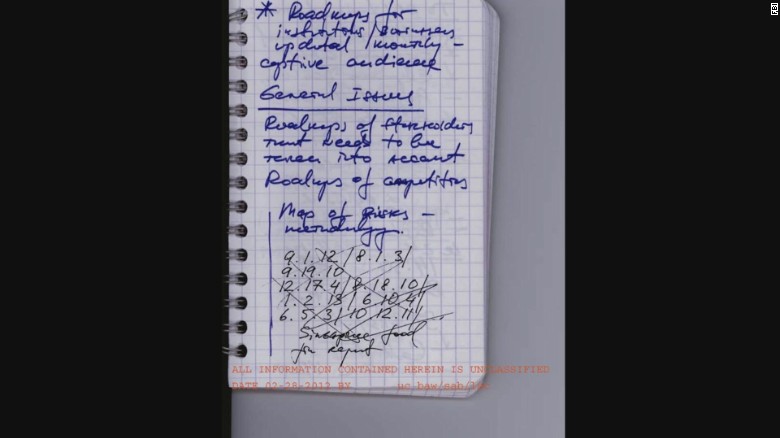 * Roadmaps for
institutions/businesses
updated monthly –
captive audience
General Issues
Roadmaps of stakeholders
that needs to be
taken into account
Roadmaps of competitors
Map of risks –
methodology.
9.1.12/8.1.3/
9.19.10
12.17.4/8.18.10/
1.2.13/6.10.4/
6.5.3/10.12.11/
food
for report
ALL INFORMATION CONTAINED HEREIN IS UNCLASSIFIED
DATE 02-28-2012 BY uc baw/sab/
FBI